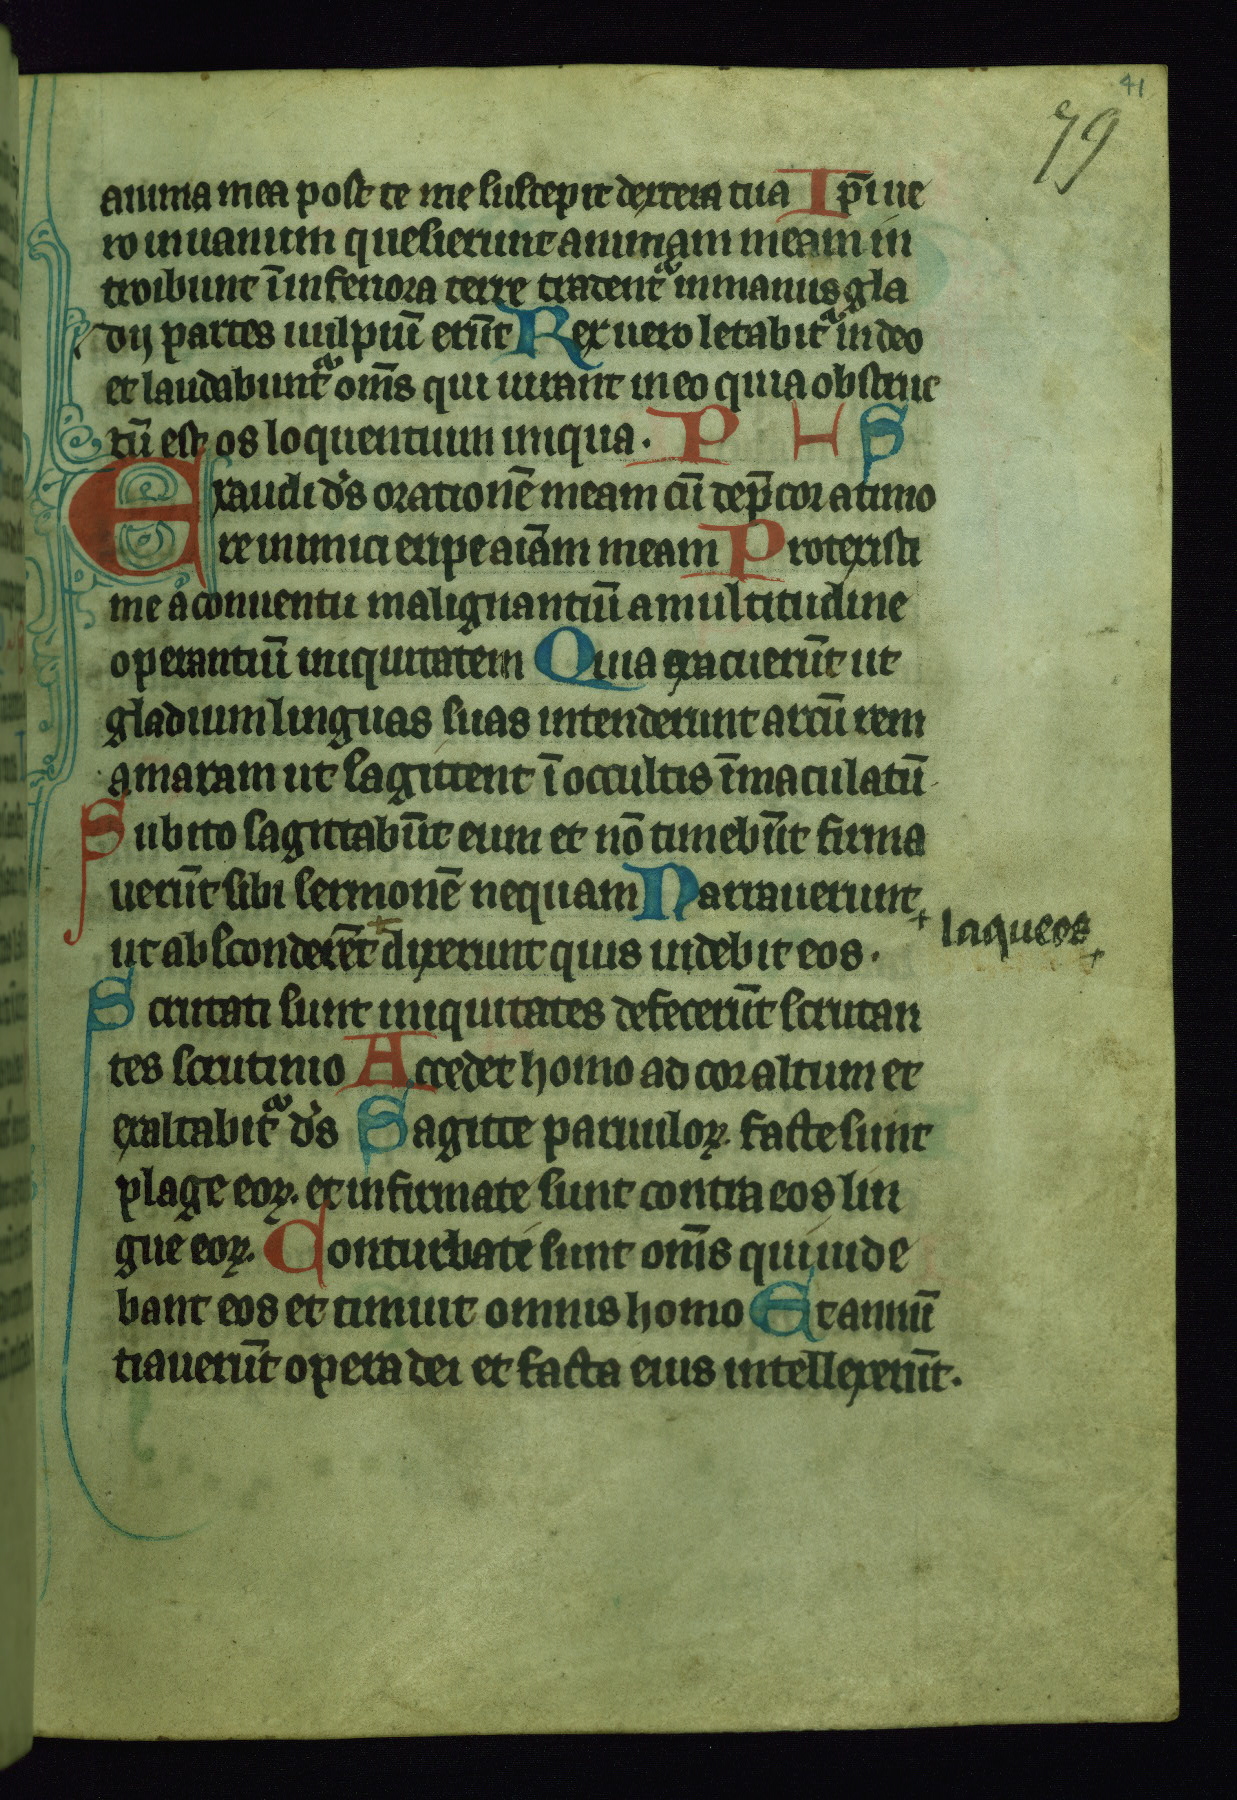 41
79
anima mea post te me suscepit dextera tua Ip̄i ue
ro in uanum quesierunt animam meam in
troibunt ī inferiora terre tradent᷑ in manus gla
dij partes uulpiū erūt Rex uero letabit᷑ in deo
et laudabunt᷑ om̄s qui iurant in eo quia obstruc
tū est os loquentium iniqua. P H S
Exaudi d̄s orationē meam cū dep̄cor a timo
re inimici eripe aīam meam Protexisti
me a conuentu malignantiū a multitudine
operantiū iniquitatem Quia exacuerūt ut
gladium linguas suas intenderunt arcū rem
amaram ut sagittent ī occultis īmaculatū
Subito sagittabūt eum et nō timebūt firma
uerūt sibi sermonē nequam Narrauerunt
ut absconderēt + dixerunt quis uidebit eos. + laqueos +
Scrutati sunt iniquitates defecerūt scrutan
tes scrutinio Accedet homo ad cor altum et
exaltabit᷑ d̄s Sagitte paruuloꝝ facte sunt
plage eoꝝ. et infirmate sunt contra eos lin
gue eoꝝ. Conturbati sunt om̄s qui uide
bant eos et timuit omnis homo Et annū
tiauerūt opera dei et facta eius intellexerūt.